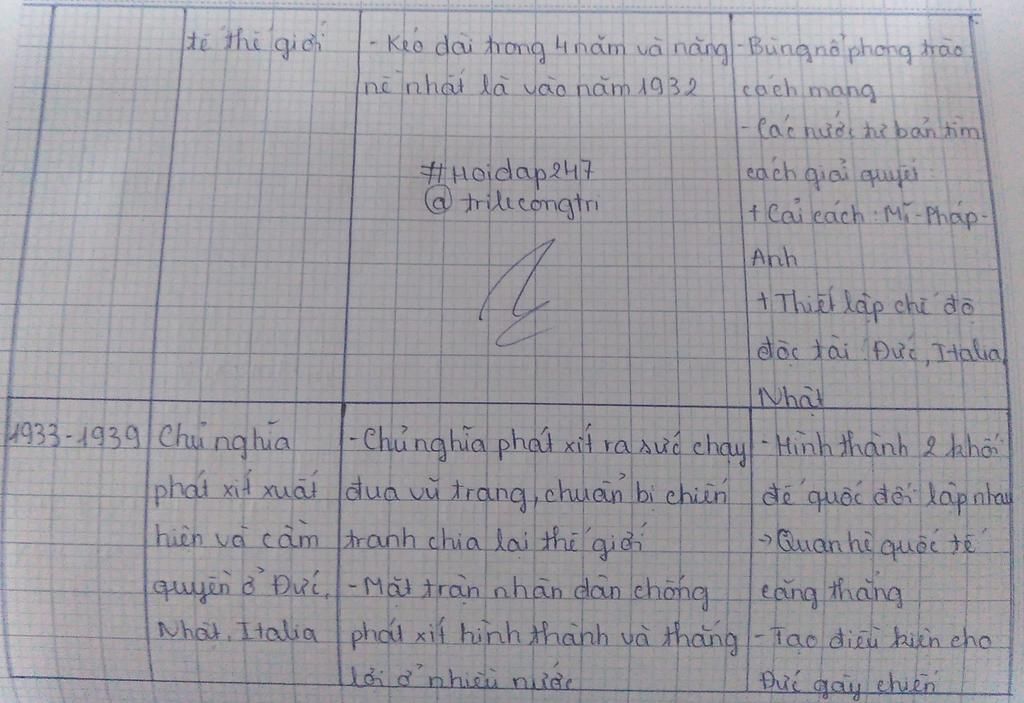 tế thế giới
- Kéo dài trong 4 năm và nặng
nề nhất là vào năm 1932
#Hoidap247
@trilecongtri
- Bùng nổ phong trào
cách mạng
- Các nước tư bản tìm
cách giải quyết:
+ Cải cách: Mĩ - Pháp -
Anh
+ Thiết lập chế độ
độc tài Đức, Italia
Nhật
1933-1939
Chủ nghĩa
phát xít xuất
hiện và cầm
quyền ở Đức,
Nhật, Italia
- Chủ nghĩa phát xít ra sức chạy
đua vũ trang, chuẩn bị chiến
tranh chia lại thế giới
- Mặt trận nhân dân chống
phát xít hình thành và thắng
lợi ở nhiều nước
- Hình thành 2 khối
đế quốc đối lập nhau
→ Quan hệ quốc tế
căng thẳng
- Tạo điều kiện cho
Đức gây chiến